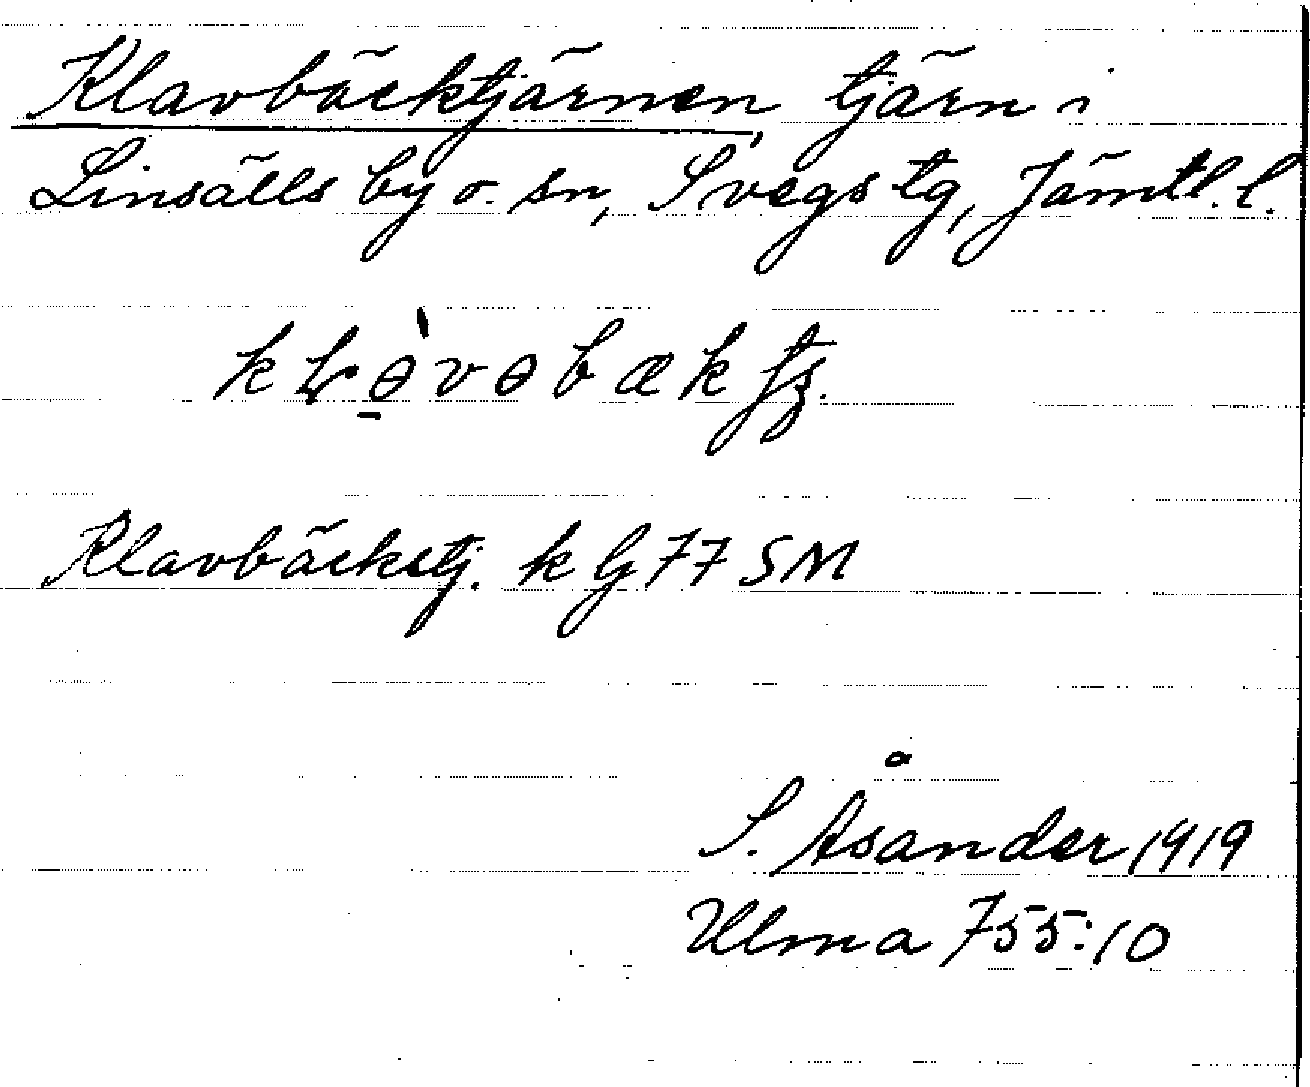 Klavbäcktjärnen, tjärn i
Linsälls by o. sn, Svegs tg, Jämtl. l.
Klavbäckstj. k bj 77 SM
S. Åsander 1919
Ulma 755:10